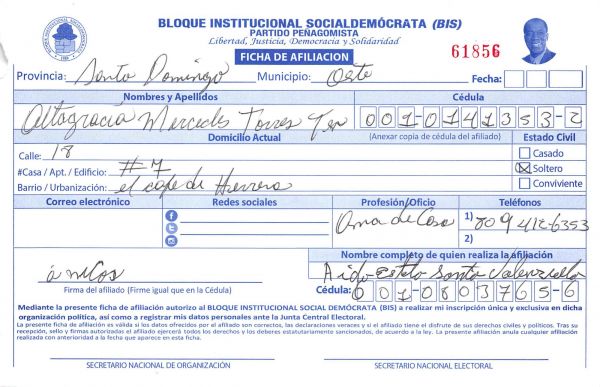 BLOQUE INSTITUCIONAL SOCIALDEMÓCRATA (BIS)
PARTIDO PEÑAGOMISTA
Libertad, Justicia, Democracia y Solidaridad
FICHA DE AFILIACION
61856
Provincia: Santo Domingo Municipio: Oeste Fecha:
Nombres y Apellidos Cédula
Altagracia Mercedes Torres 001-0141353-2
Domicilio Actual (Anexar copia de cédula del afiliado) Estado Civil
Calle: 18 Casado
#Casa / Apt. / Edificio: #7 Soltero
Barrio / Urbanización: el cafe de Herrera Conviviente
Correo electrónico Redes sociales Profesión/Oficio Teléfonos
Ama de Casa 1) 809 412-6353
2)
Nombre completo de quien realiza la afiliación
Santo
Firma del afiliado (Firme igual que en la Cédula) Cédula: 001-0803765-6
Mediante la presente ficha de afiliación autorizo al BLOQUE INSTITUCIONAL SOCIAL DEMÓCRATA (BIS) a realizar mi inscripción única y exclusiva en dicha
organización política, así como a registrar mis datos personales ante la Junta Central Electoral.
La presente ficha de afiliación es válida si los datos ofrecidos por el afiliado son correctos, las declaraciones veraces y si el afiliado tiene el disfrute de sus derechos civiles y políticos. Tras su
recepción, sello y firmas autorizadas el afiliado ejercerá todos los derechos y los deberes estatutariamente sancionados, de acuerdo a la ley. La presente afiliación anula cualquier afiliación
realizada con anterioridad a la fecha que aparece en esta ficha.
SECRETARIO NACIONAL DE ORGANIZACIÓN SECRETARIO NACIONAL ELECTORAL